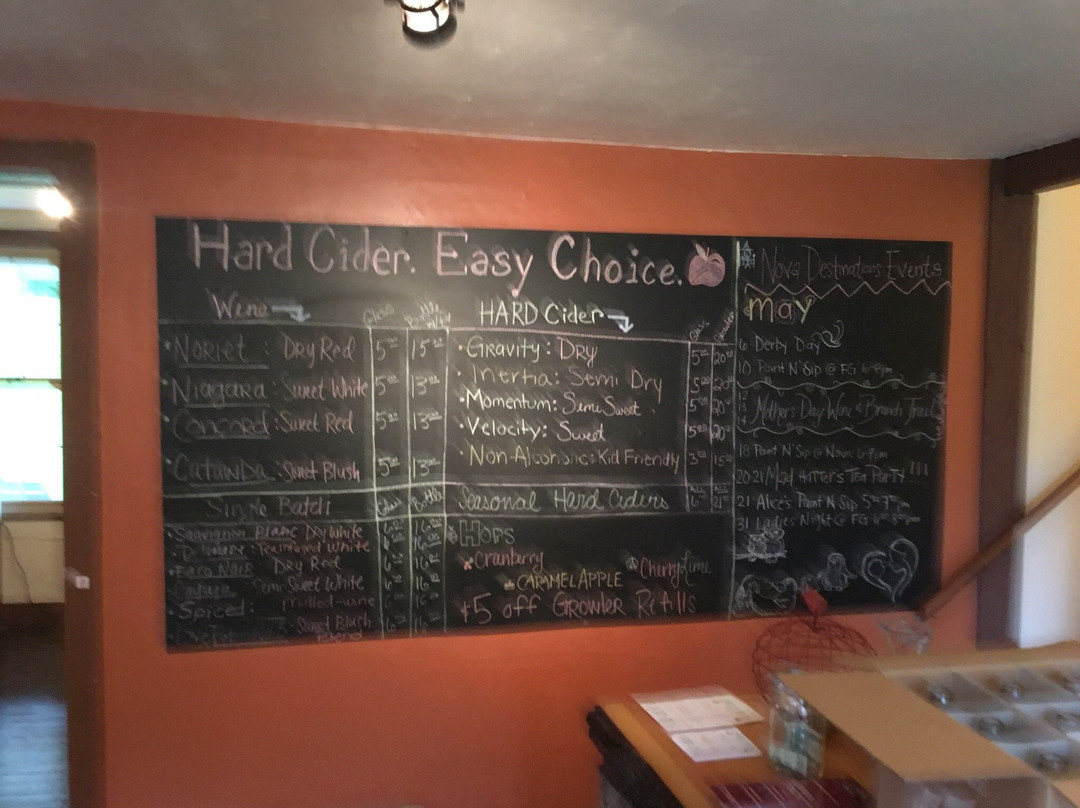 Hard Cider. Easy Choice.
Wine
Glass
Bottle
Noriet: Dry Red 5 15
Niagara: Sweet White 5 13
Concord: Sweet Red 5 13
Catawba: Sweet Blush 5 13
Single Batch
Glass Bottle
Sauvignon Blanc Dry White 16
White 16
Dry Red 6 16
Semi Sweet White 6 16
Spiced: Mulled wine 16
Sweet Blush
Blend
HARD Cider
Glass
Growler
Gravity: Dry 5 20
Inertia: Semi Dry 5 20
Momentum: Semi Sweet 5 20
Velocity: Sweet 5 20
Non-Alcoholic: Kid Friendly 3 15
Seasonal Hard Ciders
Hops
Cranberry
Cherry Lime
CARAMEL APPLE
$5 off Growler Refills
Nova Destinations Events
May
6 Derby Day
10 Paint N' Sip @ FG 6-8pm
12
13
14
Mother's Day Wine & Branch Trail
18 Paint N' Sip @ Nova 6-8pm
20 21 Mad Hatter's Tea Party !!!
21 Alice's Paint N Sip
31 Ladies Night @ FG